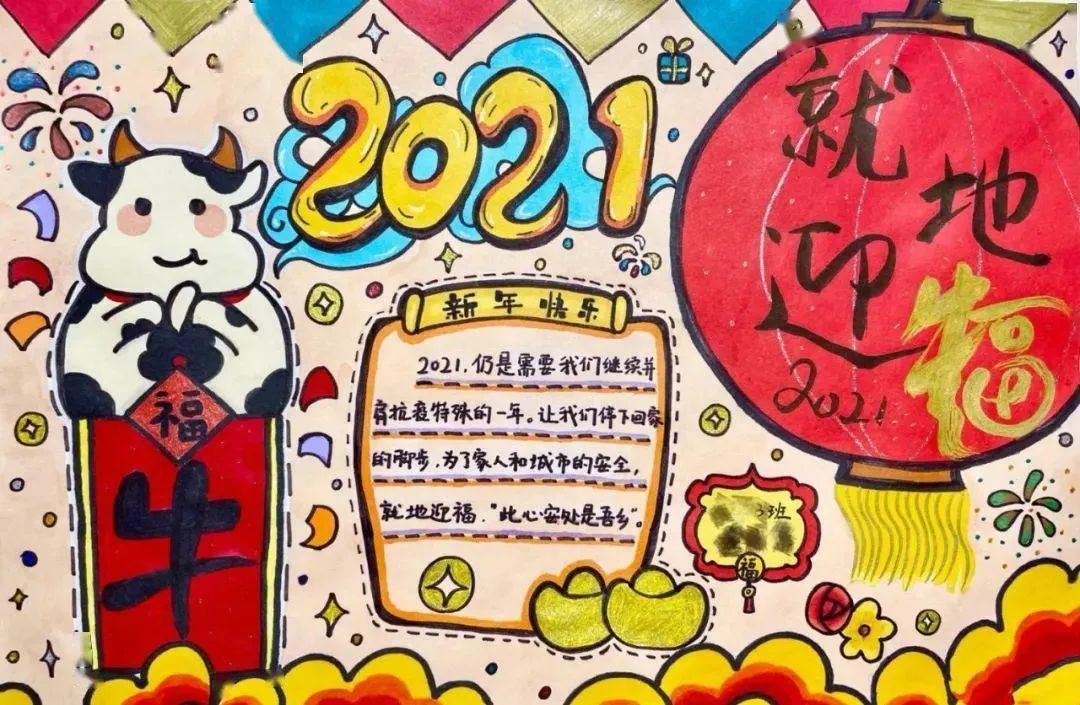 2021
就
地
迎
福
2021
新年快乐
2021.仍是需要我们继续并
肩抗疫特殊的一年。让我们停下回家
的脚步,为了家人和城市的安全,
就地迎福,"此心安处是吾乡"。
福
牛
3班
福